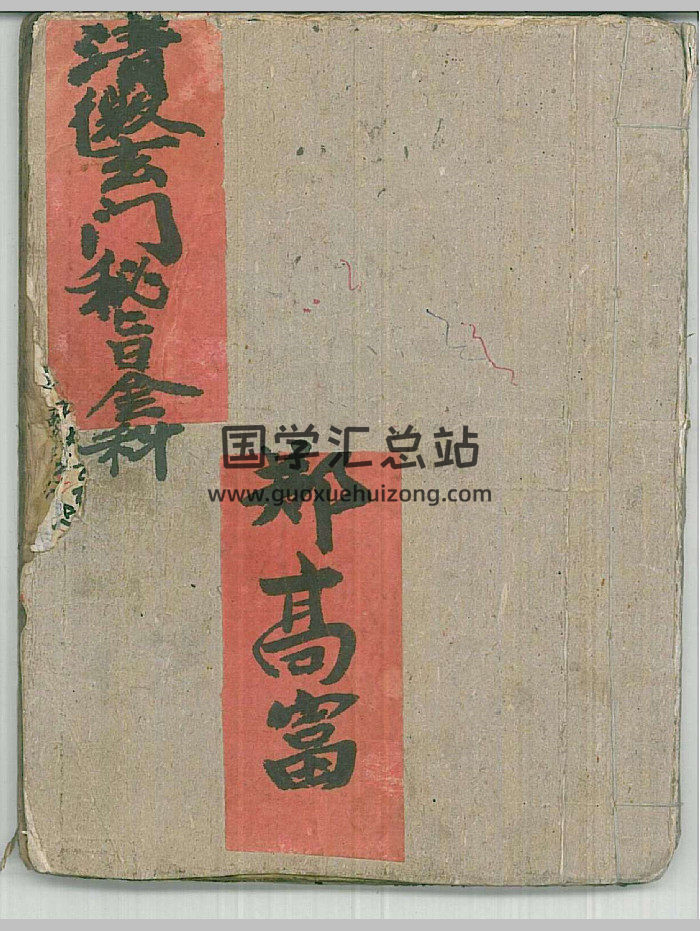 清微玄门秘旨金科
郑高富
国学汇总站
www.guoxuehuizong.com